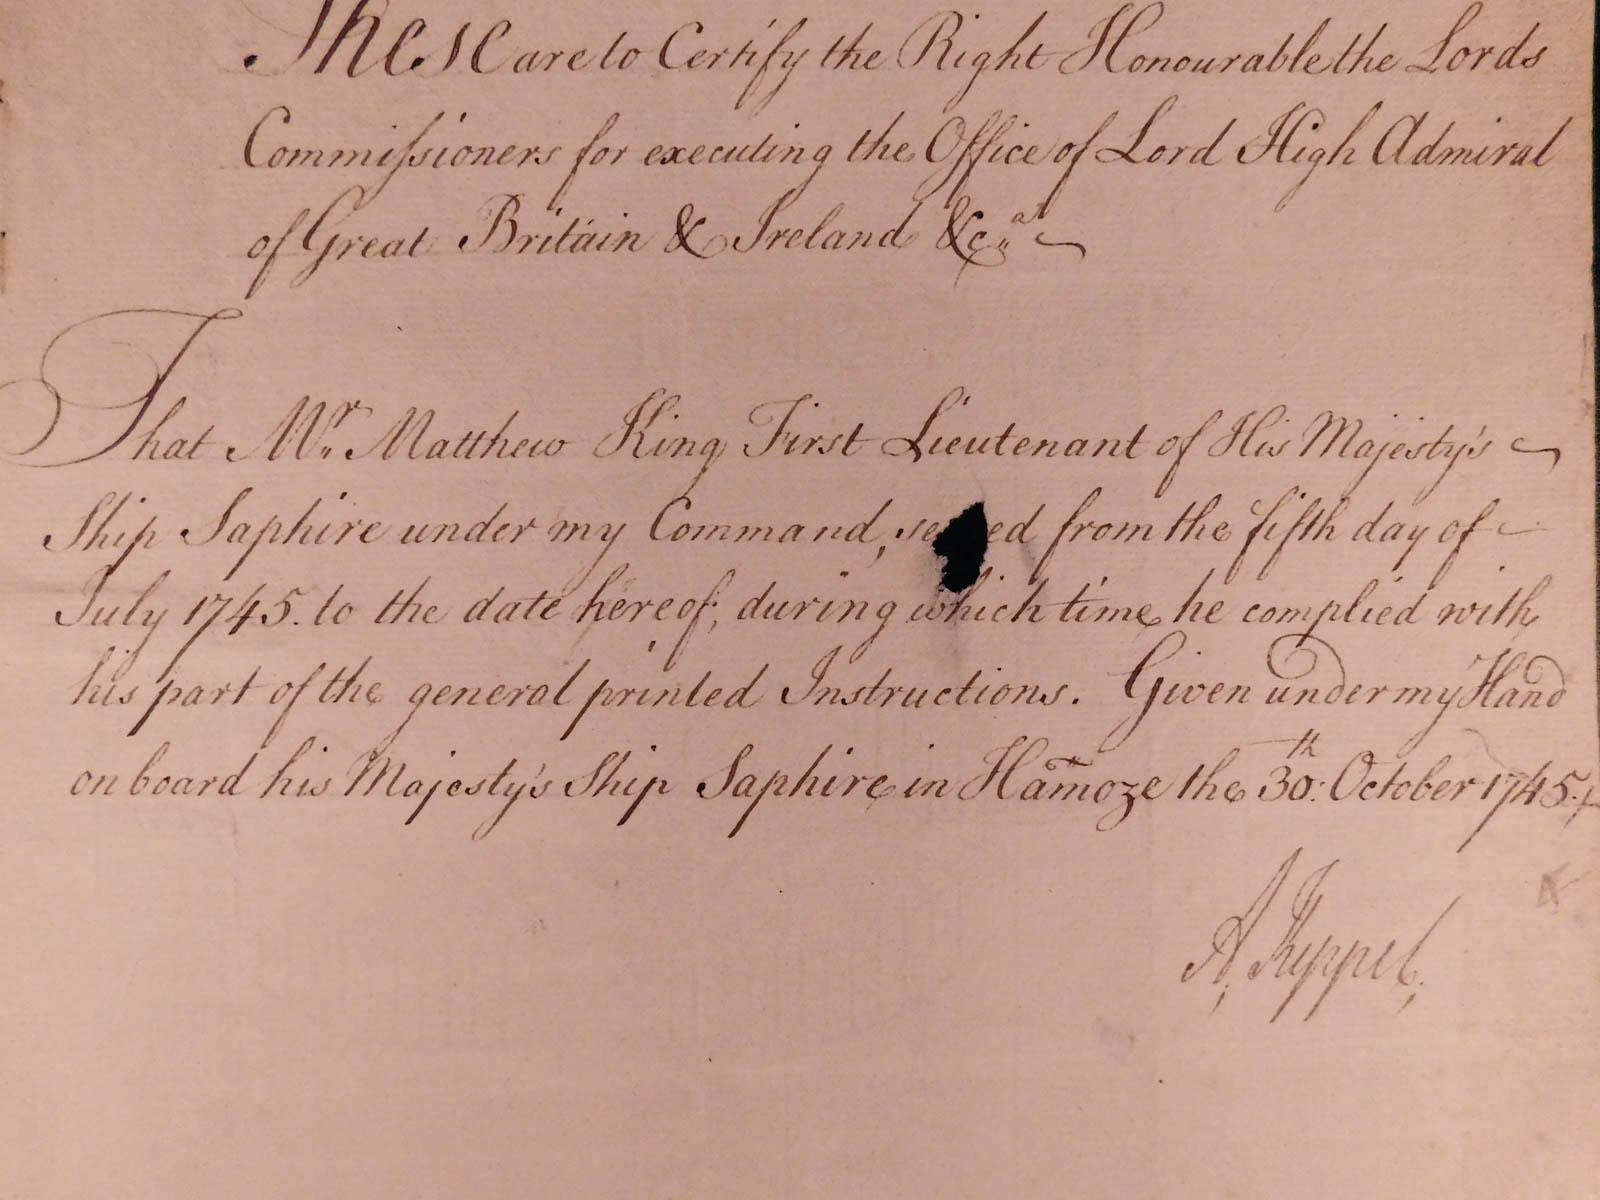 These are to Certify the Right Honourable the Lords
Commiſsioners for executing the Office of Lord High Admiral
of Great Britain & Ireland &c.a
That Mr. Matthew King First Lieutenant of His Majesty's
Ship Saphire under my Command, se ed from the fifth day of
July 1745. to the date hereof; during which time he complied with
his part of the general printed Instructions. Given under my Hand
on board his Majesty's Ship Saphire in Hamoze the 30:th October 1745.
A. Keppel.